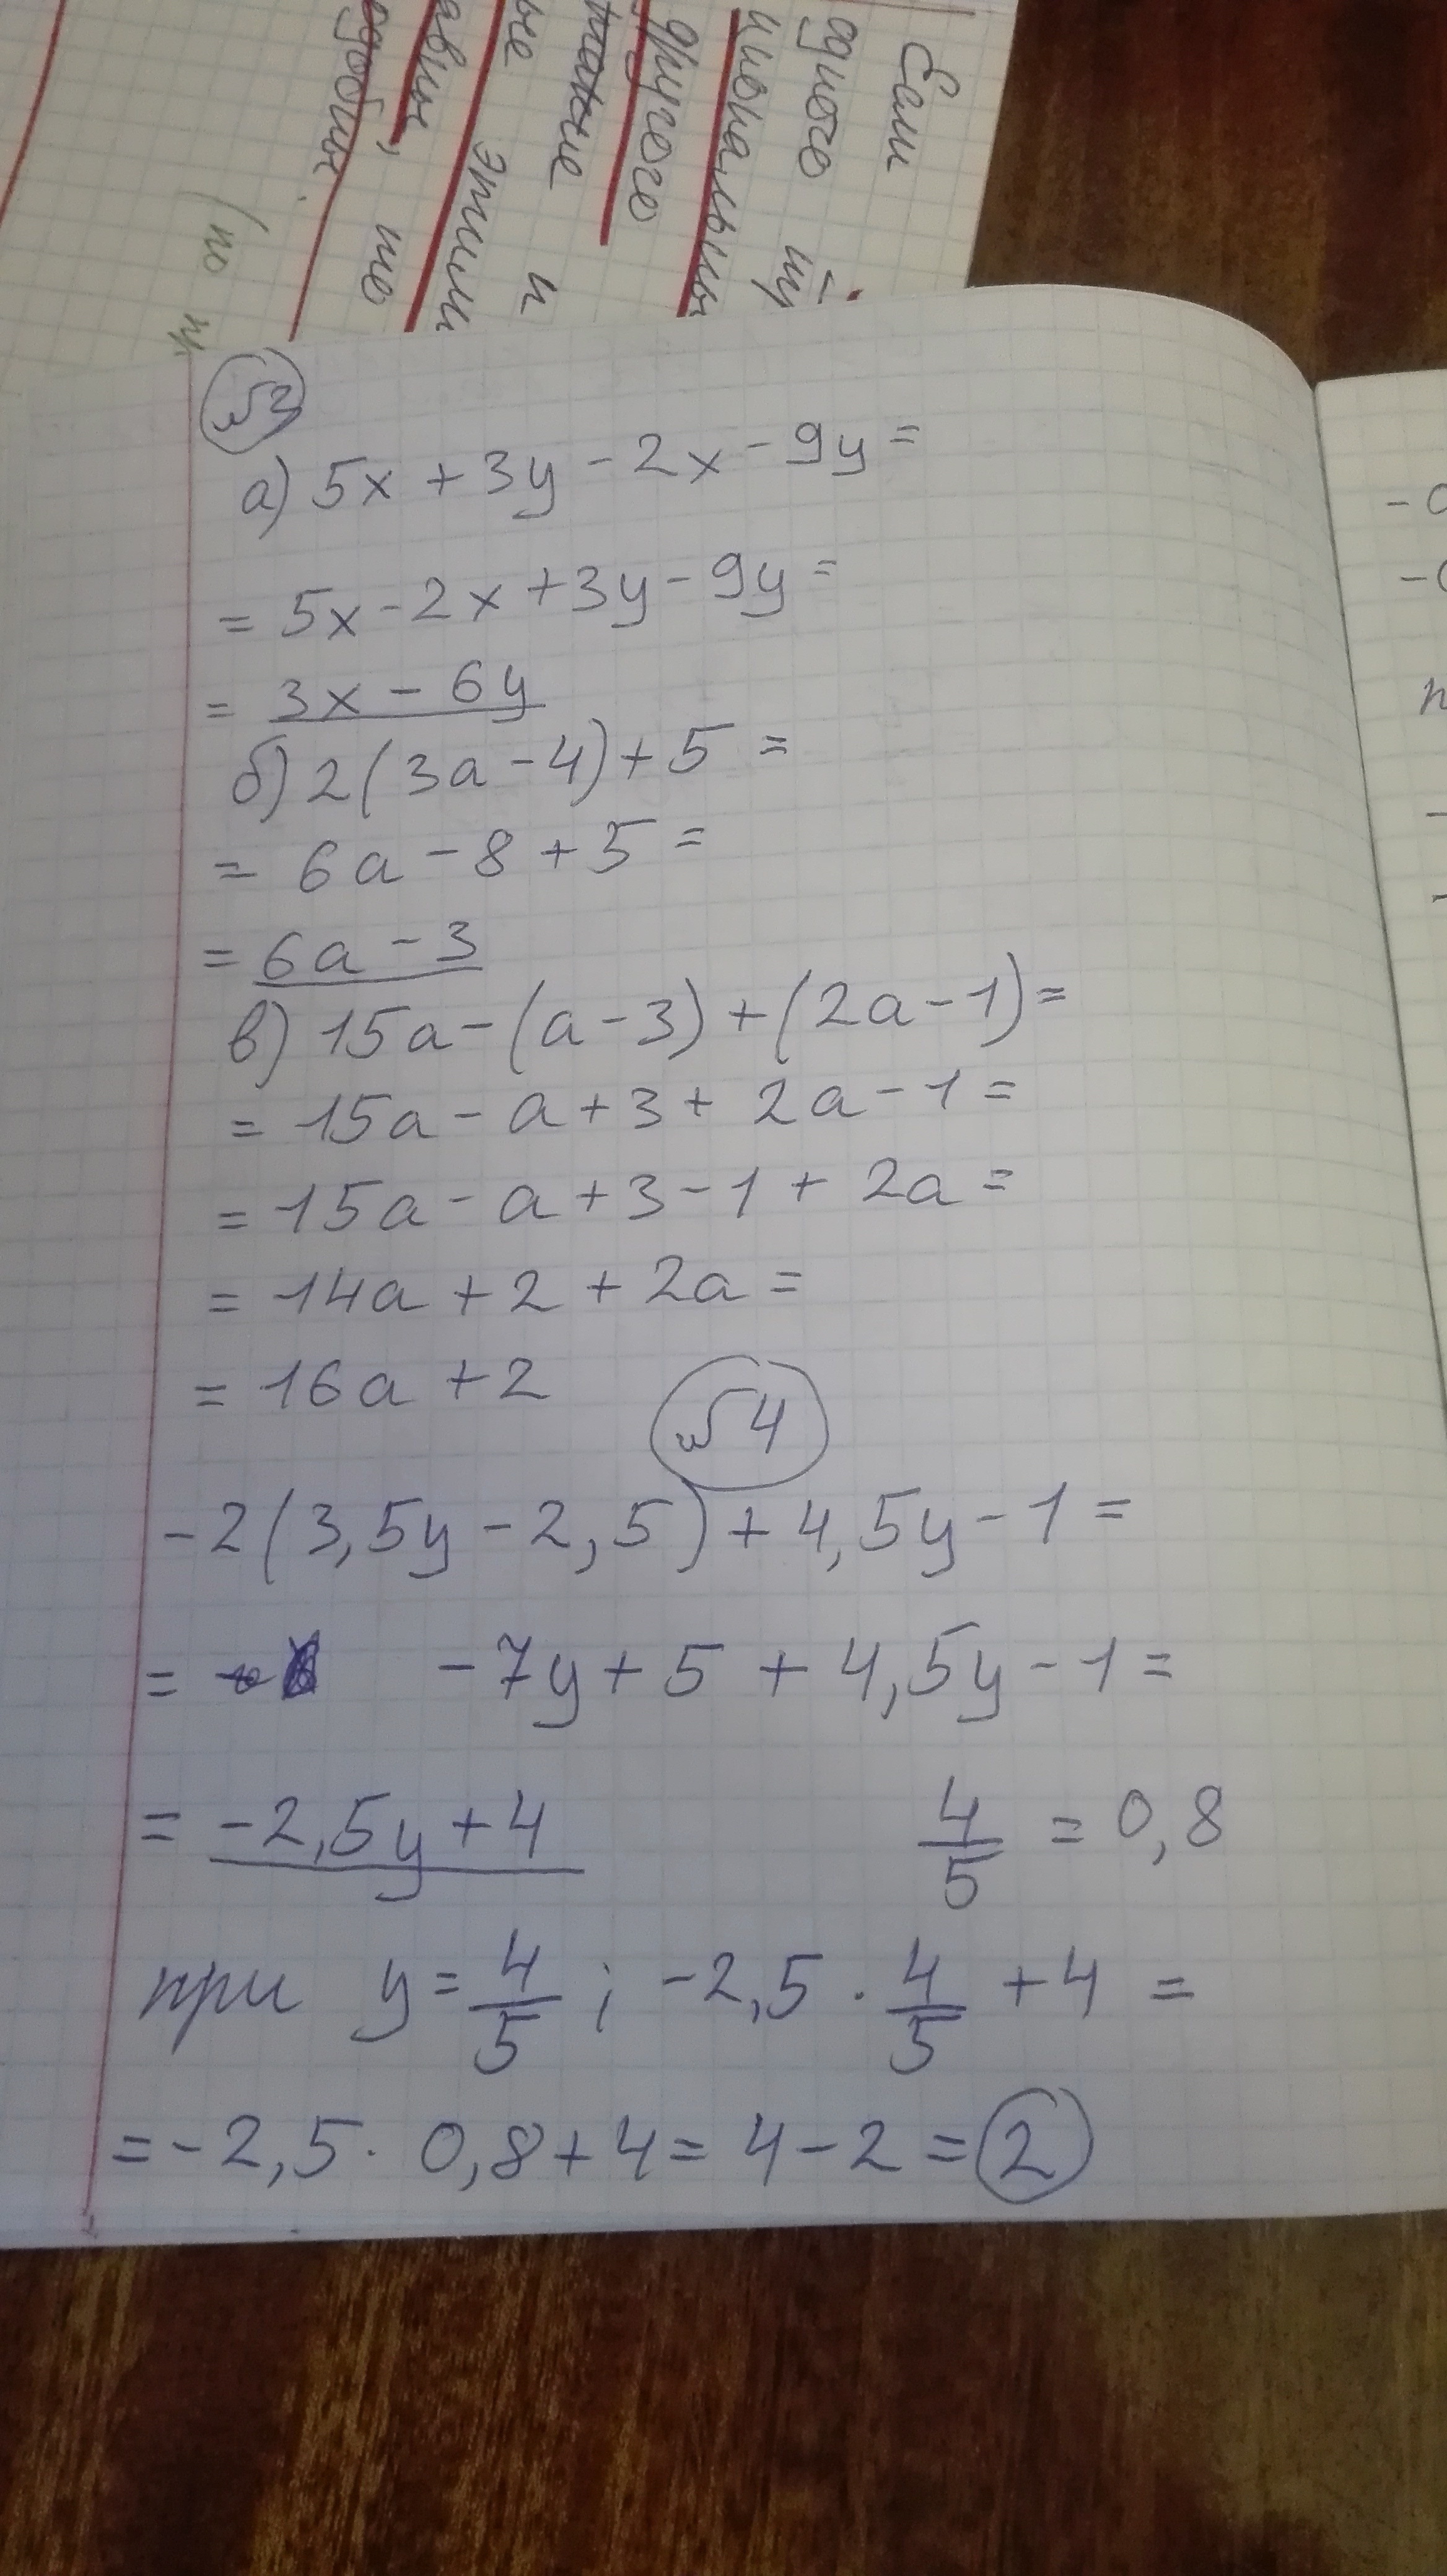 Если
одного тр
циональны
другого
ые и
этими
авны, то
одобны.
(по
№3
а) 5x + 3y - 2x - 9y =
= 5x - 2x + 3y - 9y =
= 3x - 6y
б) 2(3a - 4) + 5 =
= 6a - 8 + 5 =
= 6a - 3
в) 15a - (a - 3) + (2a - 1) =
= 15a - a + 3 + 2a - 1 =
= 15a - a + 3 - 1 + 2a =
= 14a + 2 + 2a =
= 16a + 2
№4
-2(3,5y - 2,5) + 4,5y - 1 =
= -7y + 5 + 4,5y - 1 =
= -2,5y + 4    4/5 = 0,8
при y = 4/5 ; -2,5 · 4/5 + 4 =
= -2,5 · 0,8 + 4 = 4 - 2 = 2